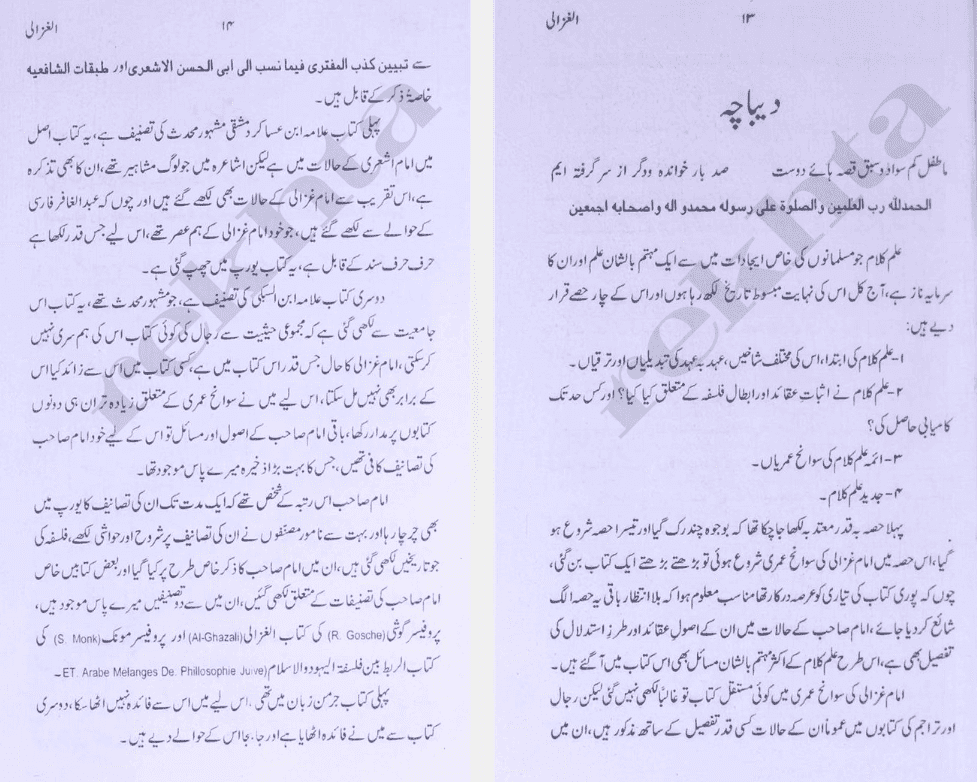 الغزالی ۱۳
دیباچہ
ما طفل کم سواد و سبق قصہ ہائے دوست صد بار خواندہ و دگر از سر گرفتہ ایم
الحمدللہ رب العلمین والصلوۃ علی رسولہ محمد و الہ واصحابہ اجمعین
علم کلام جو مسلمانوں کی خاص ایجادات میں سے ایک مہتم بالشان علم اور ان کا
سرمایہ ناز ہے، آج کل اس کی نہایت مبسوط تاریخ لکھ رہا ہوں اور اس کے چار حصے قرار
دیے ہیں:
۱- علم کلام کی ابتدا، اس کی مختلف شاخیں، عہد بہ عہد کی تبدیلیاں اور ترقیاں۔
۲- علم کلام نے اثباتِ عقائد اور ابطال فلسفہ کے متعلق کیا کیا؟ اور کس حد تک
کامیابی حاصل کی؟
۳- ائمہ علم کلام کی سوانح عمریاں۔
۴- جدید علم کلام۔
پہلا حصہ بہ قدر معتد بہ لکھا جا چکا تھا کہ بوجوہ چند رک گیا اور تیسرا حصہ شروع ہو
گیا، اس حصہ میں امام غزالی کی سوانح عمری شروع ہوئی تو بڑھتے بڑھتے ایک کتاب بن گئی،
چوں کہ پوری کتاب کی تیاری کو عرصہ درکار تھا مناسب معلوم ہوا کہ بلا انتظار باقی یہ حصہ الگ
شائع کر دیا جائے، امام صاحب کے حالات میں ان کے اصولِ عقائد اور طرزِ استدلال کی
تفصیل بھی ہے، اس طرح علم کلام کے اکثر مہتم بالشان مسائل بھی اس کتاب میں آگئے ہیں۔
امام غزالی کی سوانح عمری میں کوئی مستقل کتاب تو غالباً لکھی نہیں گئی لیکن رجال
اور تراجم کی کتابوں میں عموماً ان کے حالات کسی قدر تفصیل کے ساتھ مذکور ہیں، ان میں
الغزالی ۱۴
سے تبیین کذب المفتری فیما نسب الی ابی الحسن الاشعری اور طبقات الشافعیہ
خاصۃً ذکر کے قابل ہیں۔
پہلی کتاب علامہ ابن عساکر دمشقی مشہور محدث کی تصنیف ہے، یہ کتاب اصل
میں امام اشعری کے حالات میں ہے لیکن اشاعرہ میں جو لوگ مشاہیر تھے، ان کا بھی تذکرہ
ہے، اس تقریب سے امام غزالی کے حالات بھی لکھے گئے ہیں اور چوں کہ عبدالغافر فارسی
کے حوالے سے لکھے گئے ہیں، جو خود امام غزالی کے ہم عصر تھے، اس لیے جس قدر لکھا ہے
حرف حرف سند کے قابل ہے، یہ کتاب یورپ میں چھپ گئی ہے۔
دوسری کتاب علامہ ابن السبکی کی تصنیف ہے، جو مشہور محدث تھے، یہ کتاب اس
جامعیت سے لکھی گئی ہے کہ مجموعی حیثیت سے رجال کی کوئی کتاب اس کی ہم سری نہیں
کر سکتی، امام غزالی کا حال جس قدر اس کتاب میں ہے، کسی کتاب میں اس سے زائد کیا اس
کے برابر بھی نہیں مل سکتا، اس لیے میں نے سوانح عمری کے متعلق زیادہ تر ان ہی دونوں
کتابوں پر مدار رکھا، باقی امام صاحب کے اصول اور مسائل تو اس کے لیے خود امام صاحب
کی تصانیف کافی تھیں، جس کا بہت بڑا ذخیرہ میرے پاس موجود تھا۔
امام صاحب اس رتبہ کے شخص تھے کہ ایک مدت تک ان کی تصانیف کا یورپ میں
بھی چرچا رہا اور بہت سے نامور مصنفوں نے ان کی تصانیف پر شروح اور حواشی لکھے، فلسفہ کی
جو تاریخیں لکھی گئی ہیں، ان میں امام صاحب کا ذکر خاص طرح پر کیا گیا اور بعض کتابیں خاص
امام صاحب کی تصنیفات کے متعلق لکھی گئیں، ان میں سے دو تصنیفیں میرے پاس موجود ہیں،
پروفیسر گوشی (R. Gosche) کی کتاب الغزالی (Al-Ghazali) اور پروفیسر مونک (S. Monk) کی
کتاب الربط بین فلسفۃ الیہود والاسلام (ET. Arabe Melanges De. Phillosophie Juive)۔
پہلی کتاب جرمن زبان میں تھی، اس لیے میں اس سے فائدہ نہیں اٹھا سکا، دوسری
کتاب سے میں نے فائدہ اٹھایا ہے اور جا بجا اس کے حوالے دیے ہیں۔
rekhta
rekhta